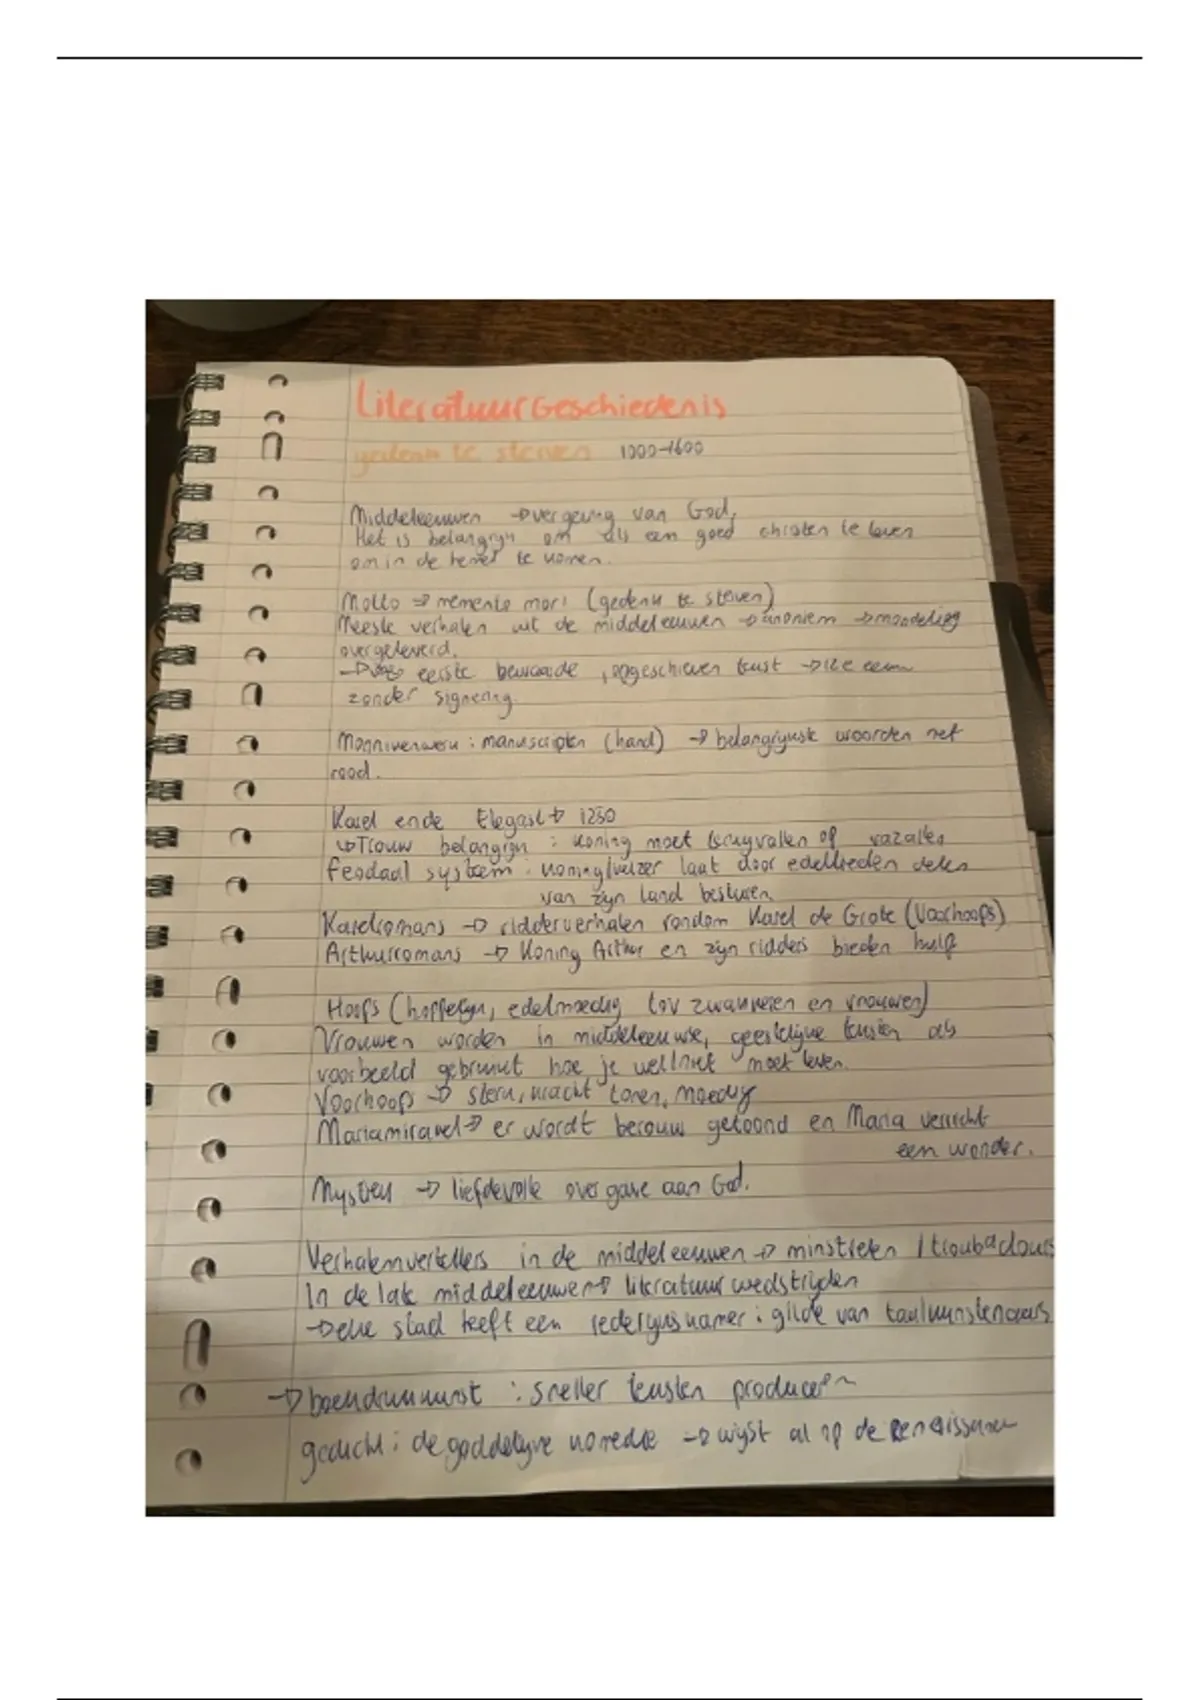 Literatuurgeschiedenis
gedenk te sterven 1000-1600
Middeleeuwen → vergeving van God,
Het is belangrijk om als een goed christen te leven
om in de hemel te komen.
Motto → memento mori (gedenk te sterven)
Meeste verhalen uit de middeleeuwen → anoniem → mondeling
overgeleverd.
→ eerste bewaarde, opgeschreven tekst → 12e eeuw
zonder signering.
Monnikenwerk : manuscripten (hand) → belangrijkste woorden met
rood.
Karel ende Elegast → 1250
↳ Trouw belangrijk : koning moet terugvallen op vazallen
feodaal systeem : koning/keizer laat door edellieden delen
van zijn land besturen
Karelromans → ridderverhalen rondom Karel de Grote (Voorhoofs)
Arthurromans → Koning Arthur en zijn ridders bieden hulp
Hoofs (hoffelijk, edelmoedig tov zwakkeren en vrouwen)
Vrouwen worden in middeleeuwse, geestelijke teksten als
voorbeeld gebruikt hoe je wel/niet moet leven.
Voorhoofs → sterk, kracht tonen, moedig
Mariamirakel → er wordt berouw getoond en Maria verricht
een wonder.
Mystiek → liefdevolle overgave aan God.
Verhalenvertellers in de middeleeuwen → minstrelen / troubadours
In de late middeleeuwen → literatuur wedstrijden
→ elke stad heeft een rederijkskamer : gilde van taalkunstenaars
→ boekdrukkunst : sneller teksten produceren
gedicht : de goddelijke komedie → wijst al op de Renaissance